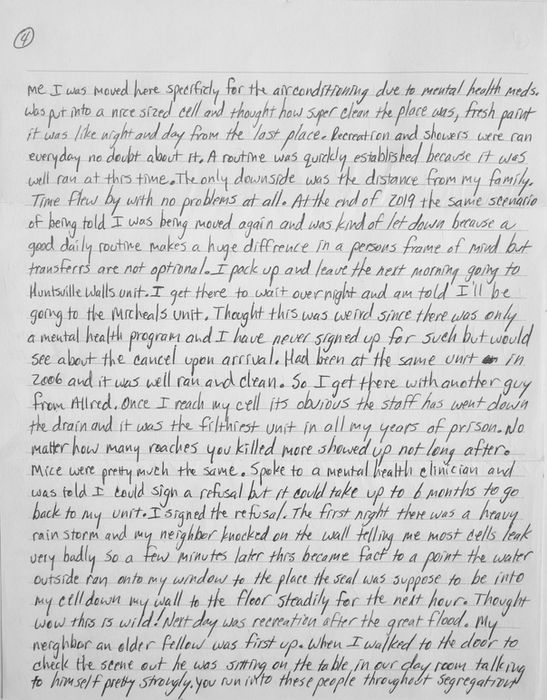 4
me I was moved here specificly for the airconditioning due to mental health meds.
Was put into a nice sized cell and thought how super clean the place was, fresh paint
it was like night and day from the last place. Recreation and showers were ran
everyday no doubt about it. A routine was quickly established because it was
well ran at this time. The only downside was the distance from my family.
Time flew by with no problems at all. At the end of 2019 the same scenario
of being told I was being moved again and was kind of let down because a
good daily routine makes a huge diffrence in a persons frame of mind but
transferrs are not optional. I pack up and leave the next morning going to
Huntsville Walls unit. I get there to wait overnight and am told I'll be
going to the Micheals Unit. Thought this was weird since there was only
a mental health program and I have never signed up for such but would
see about the cancel upon arrival. Had been at the same unit in
2006 and it was well ran and clean. So I get there with another guy
from Allred. Once I reach my cell its obvious the staff has went down
the drain and it was the filthiest unit in all my years of prison. No
matter how many roaches you killed more showed up not long after.
Mice were pretty much the same. Spoke to a mental health clinician and
was told I could sign a refusal but it could take up to 6 months to go
back to my unit. I signed the refusal. The first night there was a heavy
rain storm and my neighbor knocked on the wall telling me most cells leak
very badly so a few minutes later this became fact to a point the water
outside ran onto my window to the place the seal was suppose to be into
my cell down my wall to the floor steadily for the next hour. Thought
wow this is wild! Next day was recreation after the great flood. My
neighbor an older fellow was first up. When I walked to the door to
check the scene out he was sitting on the table in our day room talking
to himself pretty strongly. you run into these people throughout segregation